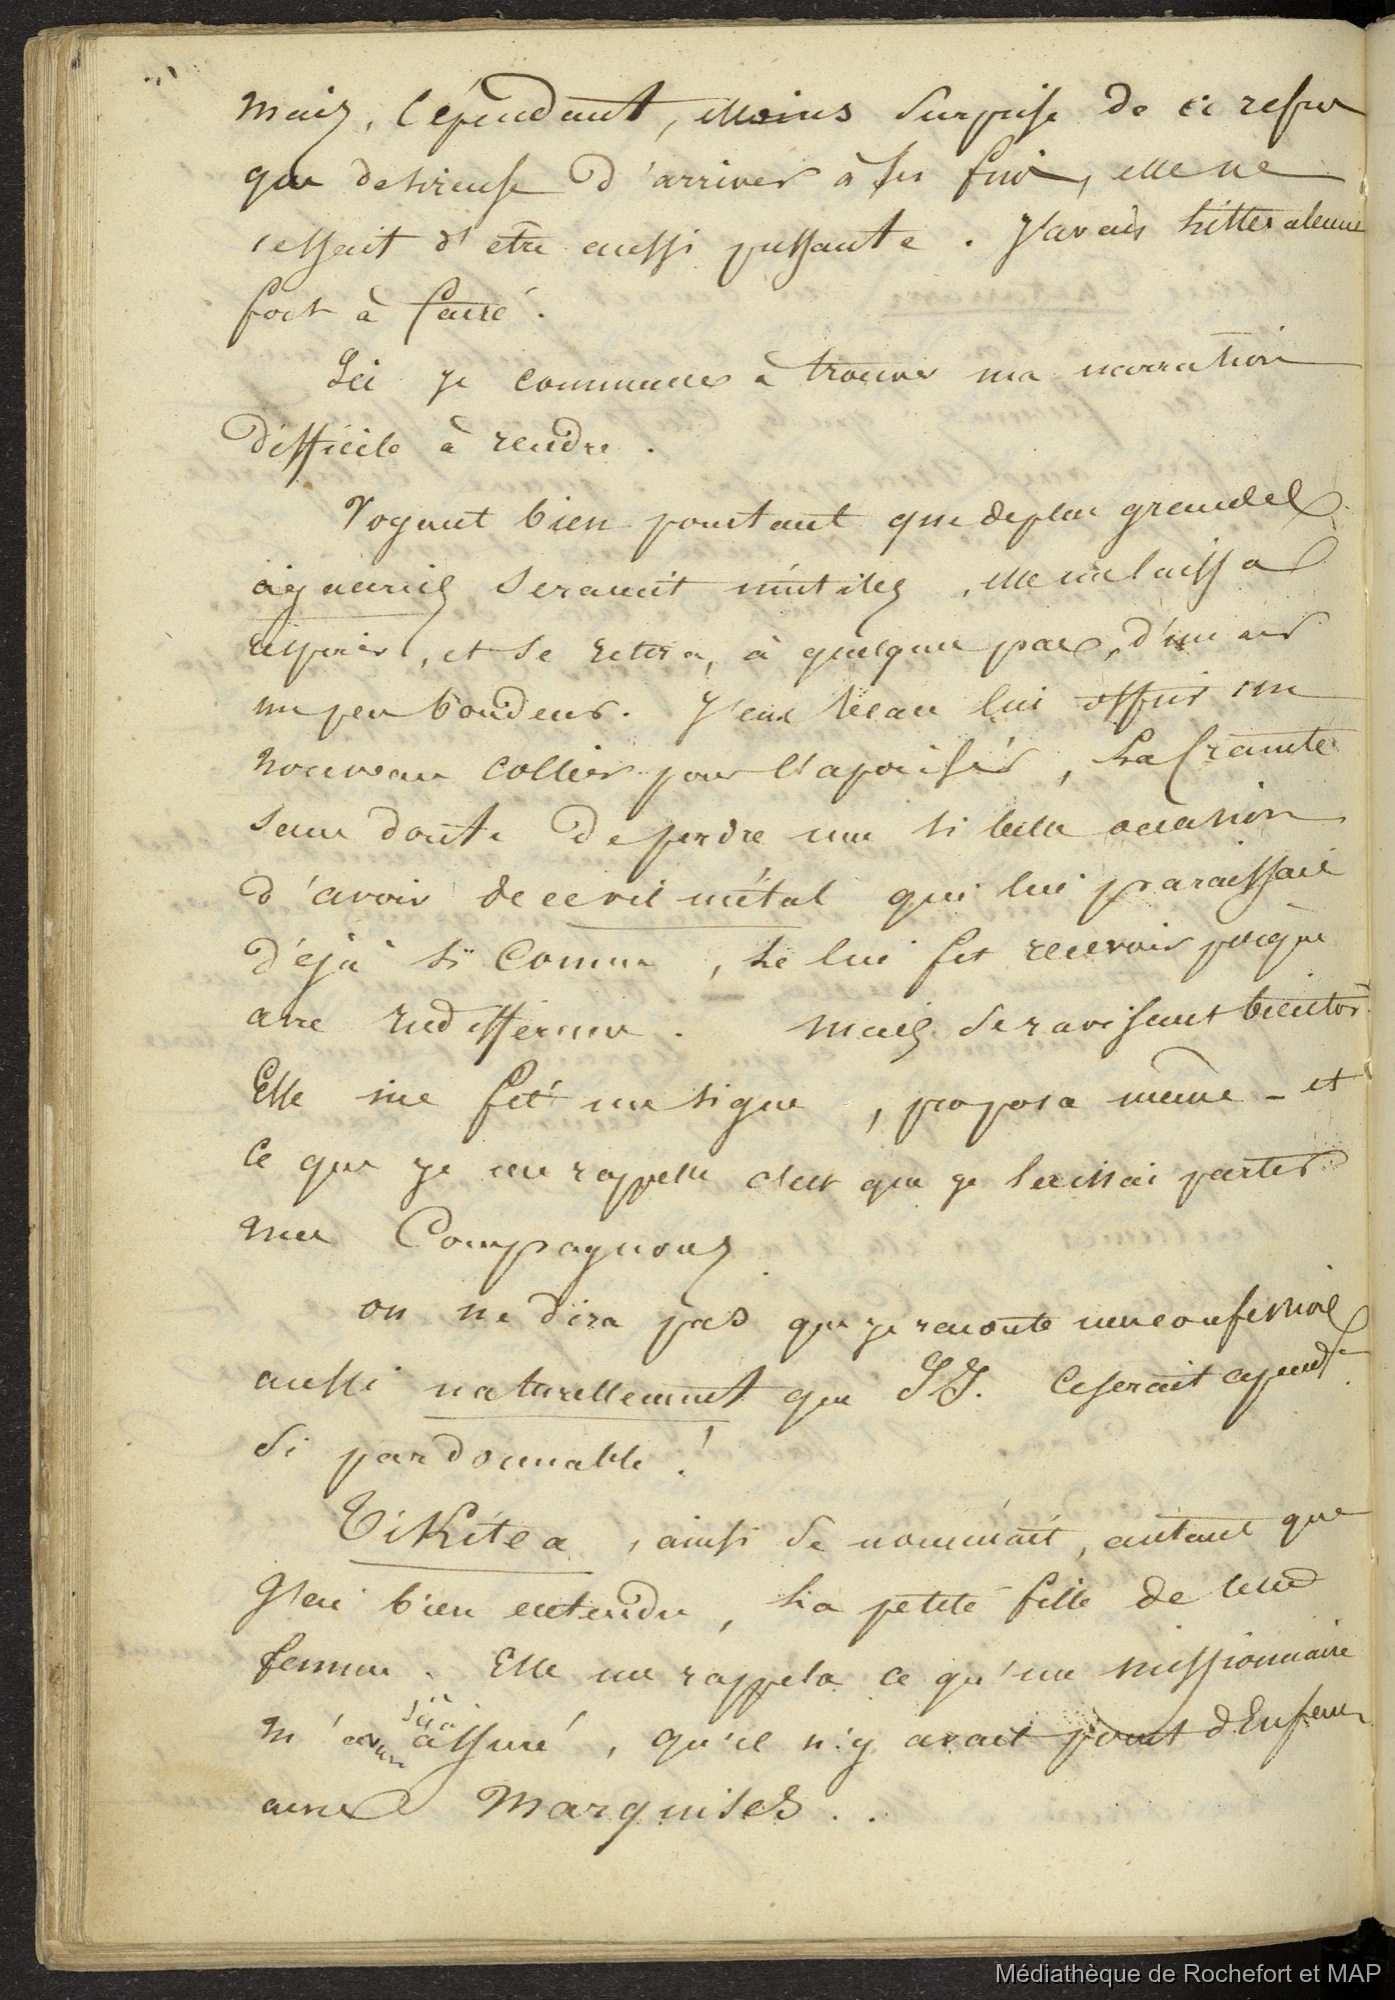 mais, cépendant, moins surprise de ce refus
que desireuse d'arriver à ses fins, elle ne
cessait d'être aussi pressante. J'avais littéralement
fort à faire.
Ici je commence à trouver ma narration
difficile à rendre.
Voyant bien pourtant que de plus grandes
agaceries seraient inutiles, elle me laissa
respirer, et se retira, à quelques pas, d'un air
un peu boudeur. J'eus beau lui offrir un
nouveau collier pour l'apaiser, la crainte
sans doute de perdre une si belle occasion
d'avoir de ce vil métal qui lui paraissait
déjà si connu, le lui fit recevoir presque
avec indifférence. mais se ravisant bientôt
Elle me fit un signe, proposa même - et
ce que je me rappelle c'est que je laissai partir
mes Compagnons
on ne dira pas que je raconte mes confessions
aussi naturellement que JJ. Ce serait cepend.t
si pardonnable !
Tikitea, ainsi se nommait, autant que
j'ai bien entendu, la petite fille de
femme. Elle me rappela ce qu'un missionnaire
m'avait déjà assuré, qu'il n'y avait point d'Enfans
aux Marquises..
Médiathèque de Rochefort et MAP